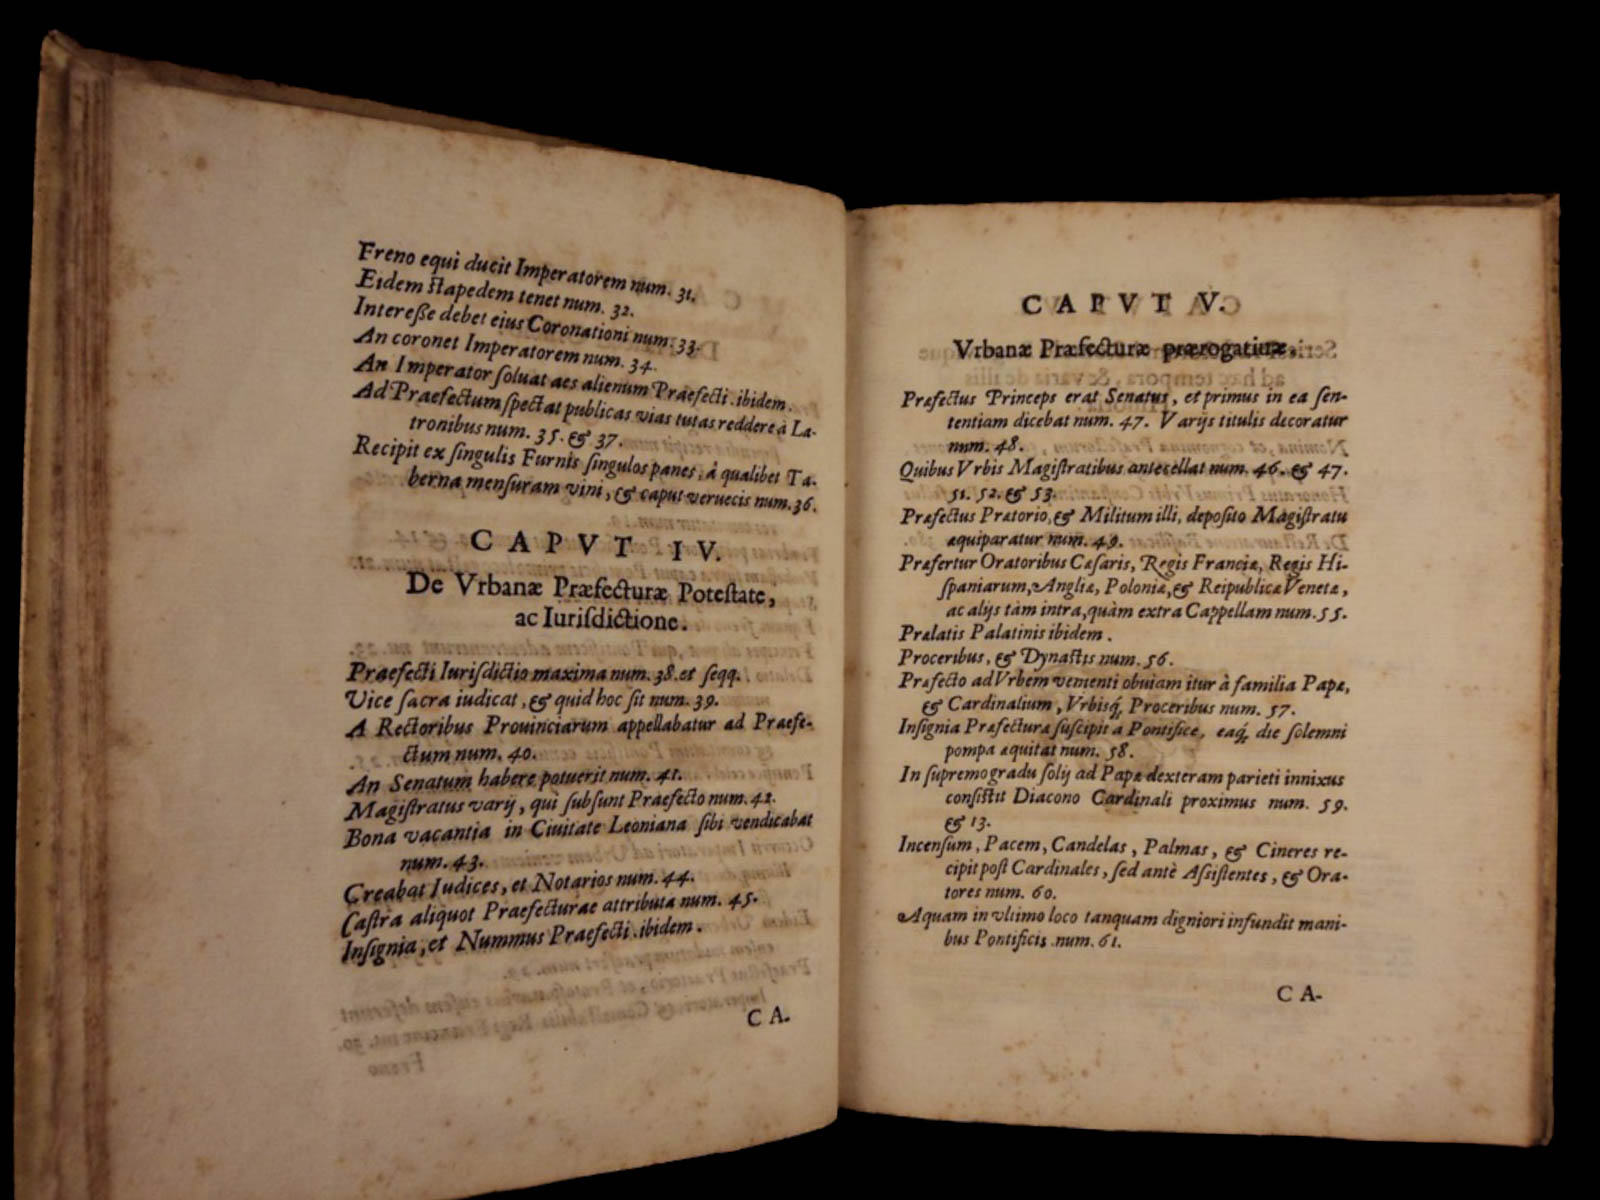 Freno equi ducit Imperatorem num. 31.
Eidem ſtapedem tenet num. 32.
Intereſſe debet eius Coronationi num. 33.
An coronet Imperatorem num. 34.
An Imperator ſoluat aes alienum Praefecti. ibidem.
Ad Praefectum ſpectat publicas vias tutas reddere à La-
tronibus num. 35. & 37.
Recipit ex ſingulis Furnis ſingulos panes, à qualibet Ta-
berna menſuram vini, & caput veruecis num. 36.
CAPVT IV.
De Vrbanæ Præfecturæ Poteſtate,
ac Iuriſdictione.
Praefecti Iuriſdictio maxima num. 38. et ſeqq.
Vice ſacra iudicat, & quid hoc ſit num. 39.
A Rectoribus Prouinciarum appellabatur ad Praefe-
ctum num. 40.
An Senatum habere potuerit num. 41.
Magiſtratus varij, qui ſubſunt Praefecto num. 42.
Bona vacantia in Ciuitate Leoniana ſibi vendicabat
num. 43.
Creabat Iudices, et Notarios num. 44.
Caſtra aliquot Praefecturae attributa num. 45.
Inſignia, et Nummus Praefecti. ibidem.
CA-
CAPVT V.
Vrbanæ Præfecturæ prærogatiuæ.
Præfectus Princeps erat Senatus, et primus in ea ſen-
tentiam dicebat num. 47. Varijs titulis decoratur
num. 48.
Quibus Vrbis Magiſtratibus antecellat num. 46. & 47.
51. 52. & 53.
Præfectus Prætorio, & Militum illi, depoſito Magiſtratu
æquiparatur num. 49.
Præfertur Oratoribus Cæſaris, Regis Franciæ, Regis Hi-
ſpaniarum, Angliæ, Poloniæ, & Reipublicæ Venetæ,
ac alijs tàm intra, quàm extra Cappellam num. 55.
Prælatis Palatinis ibidem.
Proceribus, & Dynaſtis num. 56.
Præfecto ad Vrbem venienti obuiam itur à familia Papæ,
& Cardinalium, Vrbisq́, Proceribus num. 57.
Inſignia Præfecturæ ſuſcipit a Pontifice, eaq́, die ſolemni
pompa æquitat num. 58.
In ſupremo gradu ſolij ad Papæ dexteram parieti innixus
conſiſtit Diacono Cardinali proximus num. 59.
& 13.
Incenſum, Pacem, Candelas, Palmas, & Cineres re-
cipit poſt Cardinales, ſed antè Aſſiſtentes, & Ora-
tores num. 60.
Aquam in vltimo loco tanquam digniori infundit mani-
bus Pontificis num. 61.
CA-